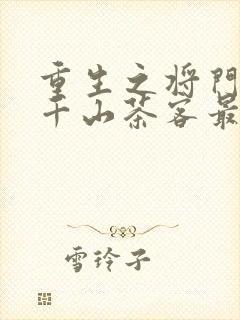 重生之将门
千山茶客最
雪玲子